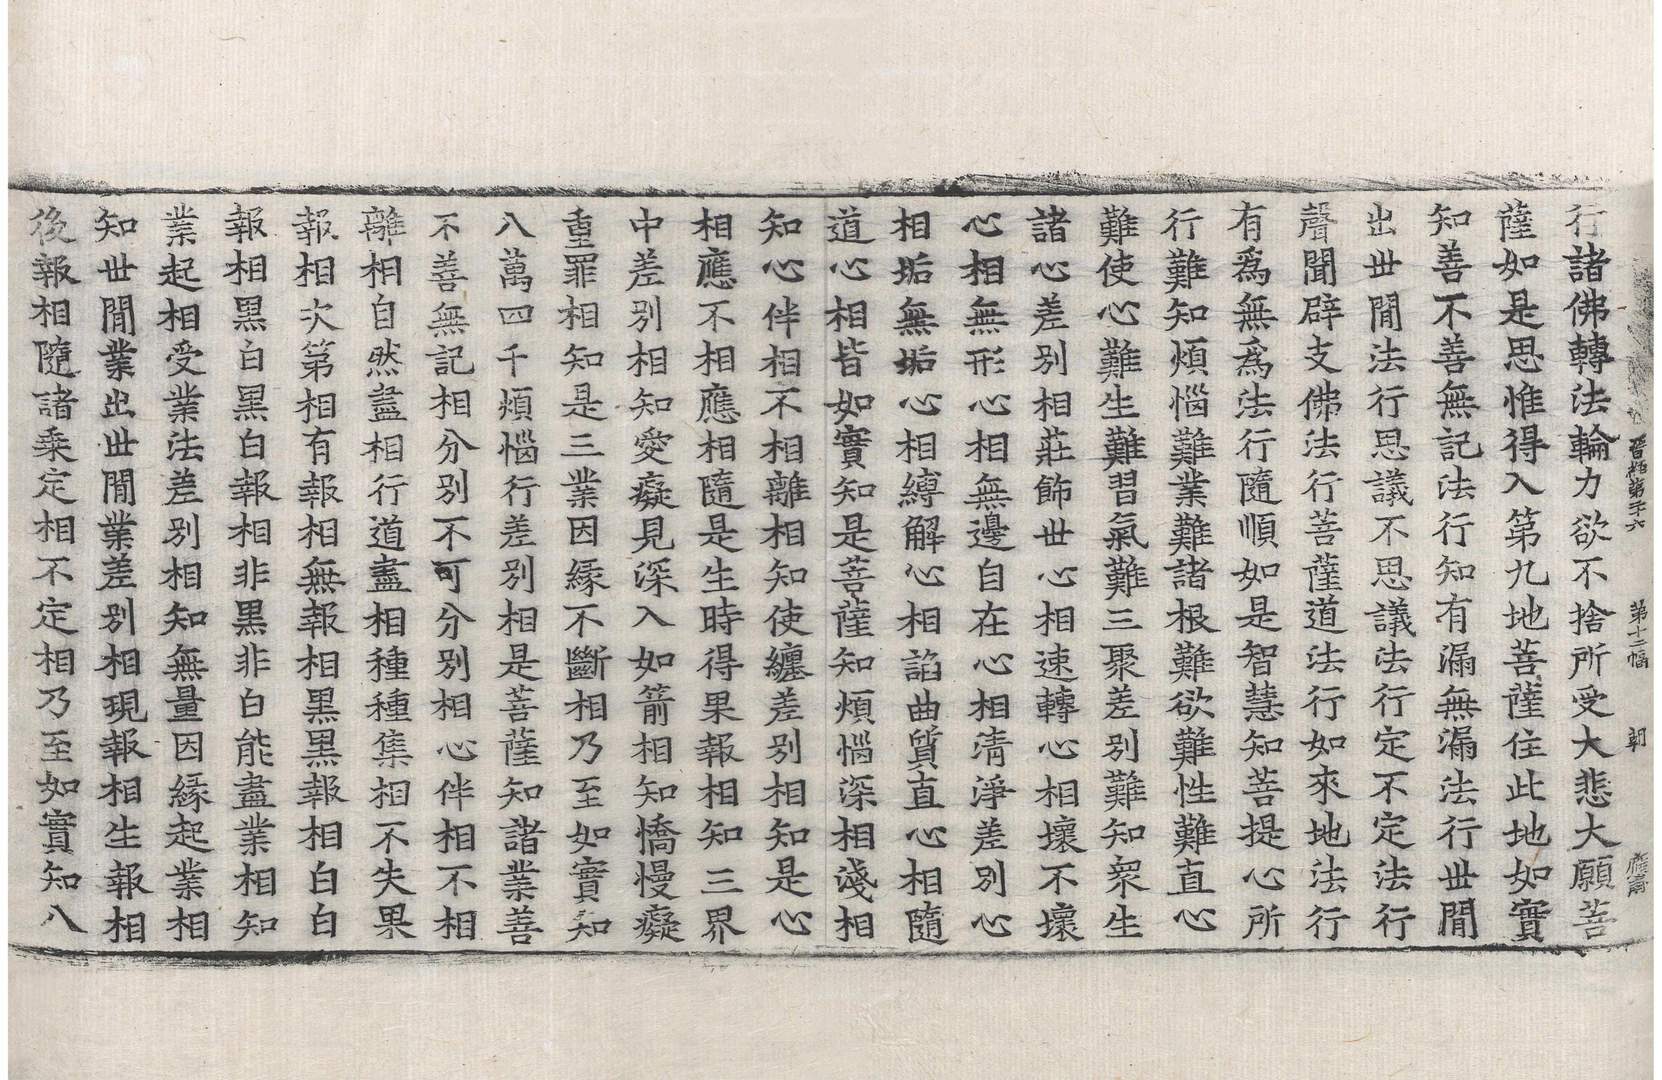 晋經第二十六　第十二幅　朝
行諸佛轉法輪力欲不捨所受大悲大願菩
薩如是思惟得入第九地菩薩住此地如實
知善不善無記法行知有漏無漏法行世閒
出世閒法行思議不思議法行定不定法行
聲聞辟支佛法行菩薩道法行如來地法行
有爲無爲法行隨順如是智慧知菩提心所
行難知煩惱難業難諸根難欲難性難直心
難使心難生難習氣難三聚差別難知衆生
諸心差別相莊飾世心相速轉心相壞不壞
心相無形心相無邊自在心相淸淨差別心
相垢無垢心相縛解心相諂曲質直心相隨
道心相皆如實知是菩薩知煩惱深相淺相
知心伴相不相離相知使纏差別相知是心
相應不相應相隨是生時得果報相知三界
中差別相知愛癡見深入如箭相知憍慢癡
重罪相知是三業因緣不斷相乃至如實知
八萬四千煩惱行差別相是菩薩知諸業善
不善無記相分別不可分別相心伴相不相
離相自然盡相行道盡相種種集相不失果
報相次第相有報相無報相黑黑報相白白
報相黑白黑白報相非黑非白能盡業相知
業起相受業法差別相知無量因緣起業相
知世閒業出世閒業差別相現報相生報相
後報相隨諸乘定相不定相乃至如實知八